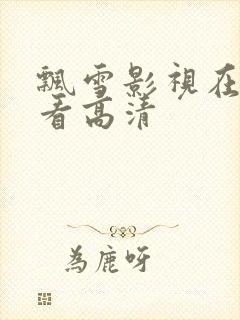 飄雪影視在
看高清
為鹿呀